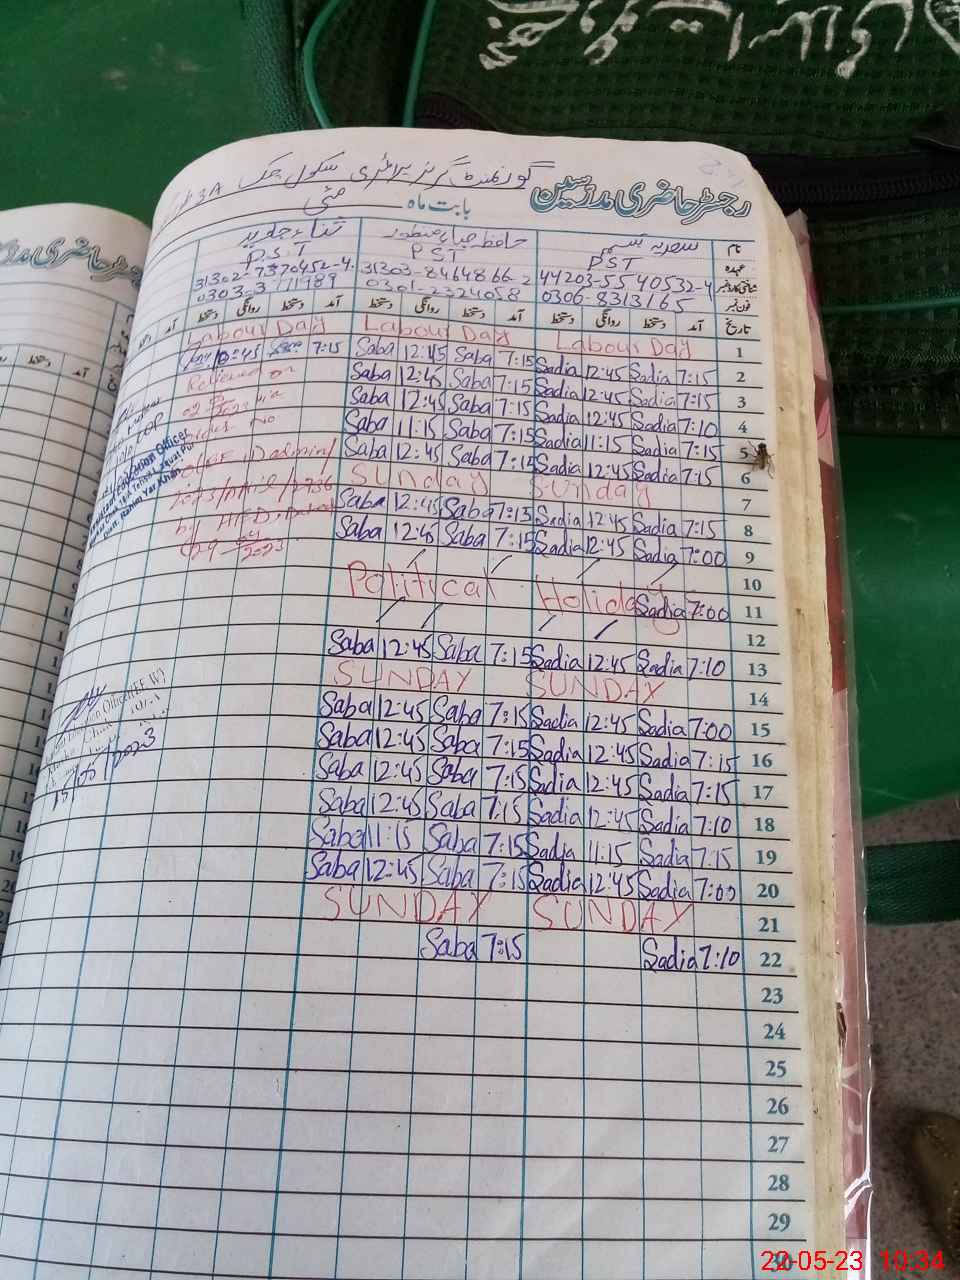 رجسٹر حاضری مدرسین
گورنمنٹ گرلز پرائمری سکول چک
بابت ماہ مئی
نام سعدیہ تبسم حافظہ صباء منظور ثناء جاوید
عہدہ PST PST P.S.T
شناختی کارڈ نمبر 44203-5540532-4 31303-8464866-2 31302-7370452-4
فون نمبر 0306-8313165 0301-2324058
تاریخ آمد دستخط روانگی دستخط آمد دستخط روانگی دستخط آمد دستخط روانگی دستخط
Labour Day Labour Day Labour Day 1
12:45 7:15 Saba 12:45 Saba 7:15 Sadia 12:45 Sadia 7:15 2
Relieved on Saba 12:45 Saba 7:15 Sadia 12:45 Sadia 7:15 3
Saba 12:45 Saba 7:15 Sadia 12:45 Sadia 7:10 4
No Saba 11:15 Saba 7:15 Sadia 11:15 Sadia 7:15 5
Saba 12:45 Saba 7:15 Sadia 12:45 Sadia 7:15 6
Sunday Sunday 7
Saba 12:45 Saba 7:15 Sadia 12:45 Sadia 7:15 8
Saba 12:45 Saba 7:15 Sadia 12:45 Sadia 7:00 9
10
Political Holiday Sadia 7:00 11
12
Saba 12:45 Saba 7:15 Sadia 12:45 Sadia 7:10 13
SUNDAY SUNDAY 14
Saba 12:45 Saba 7:15 Sadia 12:45 Sadia 7:00 15
Saba 12:45 Saba 7:15 Sadia 12:45 Sadia 7:15 16
Saba 12:45 Saba 7:15 Sadia 12:45 Sadia 7:15 17
Saba 12:45 Saba 7:15 Sadia 12:45 Sadia 7:10 18
Saba 11:15 Saba 7:15 Sadia 11:15 Sadia 7:15 19
Saba 12:45 Saba 7:15 Sadia 12:45 Sadia 7:00 20
SUNDAY SUNDAY 21
Saba 7:15 Sadia 7:10 22
23
24
25
26
27
28
29
30
Education Officer
Distt. Rahim Yar Khan
15/05/2023
22-05-23 10:34